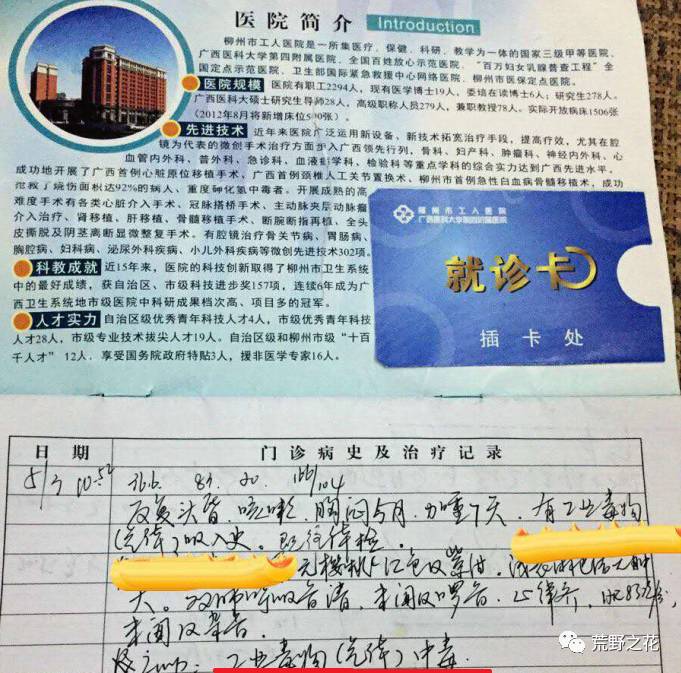 医院简介 Introduction
柳州市工人医院是一所集医疗、保健、科研、教学为一体的国家三级甲等医院、
广西医科大学第四附属医院、全国百姓放心示范医院、“百万妇女乳腺普查工程”全
国定点示范医院、卫生部国际紧急救援中心网络医院、柳州市医保定点医院。
医院规模 医院有职工2294人，现有医学博士19人、委培在读博士6人；研究生278人。
广西医科大硕士研究生导师28人，高级职称人员279人，兼职教授78人。实际开放病床1506张
(2012年8月将新增床位500张)
先进技术 近年来医院广泛运用新设备、新技术拓宽治疗手段，提高疗效，尤其在腔
镜为代表的微创手术治疗方面步入广西领先行列，骨科、妇产科、肿瘤科、神经内外科、心
血管内外科、普外科、急诊科、血液科学科、检验科等重点学科的综合实力达到广西先进水平。
成功地开展了广西首例心脏原位移植手术、广西首例颈椎人工关节置换术、柳州市首例急性白血病骨髓移植术，成功
抢救了烧伤面积达92%的病人、重度砷化氢中毒者。开展成熟的高
难度手术有各类心脏介入手术、冠脉搭桥手术、主动脉夹层动脉瘤
介入治疗、肾移植、肝移植、骨髓移植手术、断腕断指再植、全头
皮撕脱及阴茎离断显微整复手术。有腔镜治疗骨关节病、胃肠病、
胸腔病、妇科病、泌尿外科疾病、小儿外科疾病等微创先进技术302项。
科教成就 近15年来，医院的科技创新取得了柳州市卫生系统
中的最好成绩，获自治区、市级科技进步奖157项，连续6年成为广
西卫生系统地市级医院中科研成果档次高、项目多的冠军。
人才实力 自治区级优秀青年科技人才4人，市级优秀青年科技
人才28人，市级专业技术拔尖人才19人。自治区级和柳州市级“十百
千人才” 12人，享受国务院政府特贴3人，援非医学专家16人。
柳州市工人医院
广西医科大学第四附属医院
就诊卡
插卡处
日期 门诊病史及治疗记录
36.6 84 20 104
反复头昏、咳嗽、胸闷5月，加重7天。有工业毒物
(汽铸)吸入史。既往体检
大。双肺呼吸音清，未闻及啰音。心律齐，
未闻及杂音。
工业毒物(汽铸)中毒
荒野之花